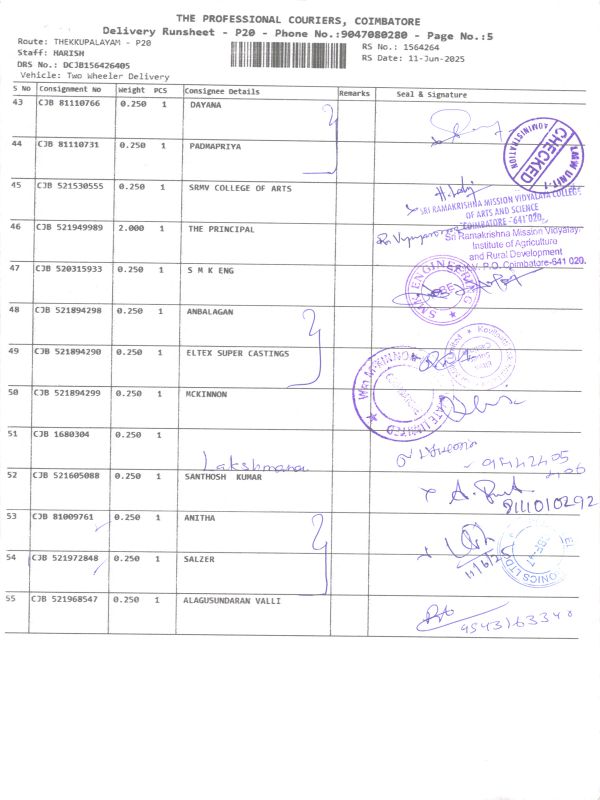 THE PROFESSIONAL COURIERS, COIMBATORE
Delivery Runsheet - P20 - Phone No.:9047080280 - Page No.:5
Route: THEKKUPALAYAM - P20
RS No.: 1564264
Staff: HARISH
RS Date: 11-Jun-2025
DRS No.: DCJB156426405
Vehicle: Two Wheeler Delivery
S No Consignment No Weight PCS Consignee Details Remarks Seal & Signature
43 CJB 81110766 0.250 1 DAYANA
44 CJB 81110731 0.250 1 PADMAPRIYA
ADMINISTRATION
CHECKED
LMW UNIT-1
45 CJB 521530555 0.250 1 SRMV COLLEGE OF ARTS
SRI RAMAKRISHNA MISSION VIDYALAYA COLLEGE
OF ARTS AND SCIENCE
COIMBATORE -641 020.
46 CJB 521949989 2.000 1 THE PRINCIPAL
Sri Ramakrishna Mission Vidyalay
Institute of Agriculture
and Rural Development
P.O. Coimbatore-641 020.
47 CJB 520315933 0.250 1 S M K ENG
SMK ENGINEERING
48 CJB 521894298 0.250 1 ANBALAGAN
49 CJB 521894290 0.250 1 ELTEX SUPER CASTINGS
50 CJB 521894299 0.250 1 MCKINNON
LIMITED
51 CJB 1680304 0.250 1
Lakshmana
52 CJB 521605088 0.250 1 SANTHOSH KUMAR
53 CJB 81009761 0.250 1 ANITHA
54 CJB 521972848 0.250 1 SALZER
11/6/25
ONICS LTD
55 CJB 521968547 0.250 1 ALAGUSUNDARAN VALLI